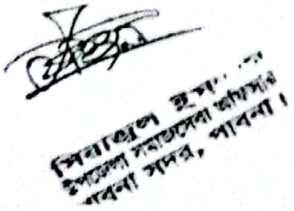 সিরাজুল ইস
উপজেলা সমাজসেবা অফিসার
পাবনা সদর, পাবনা।